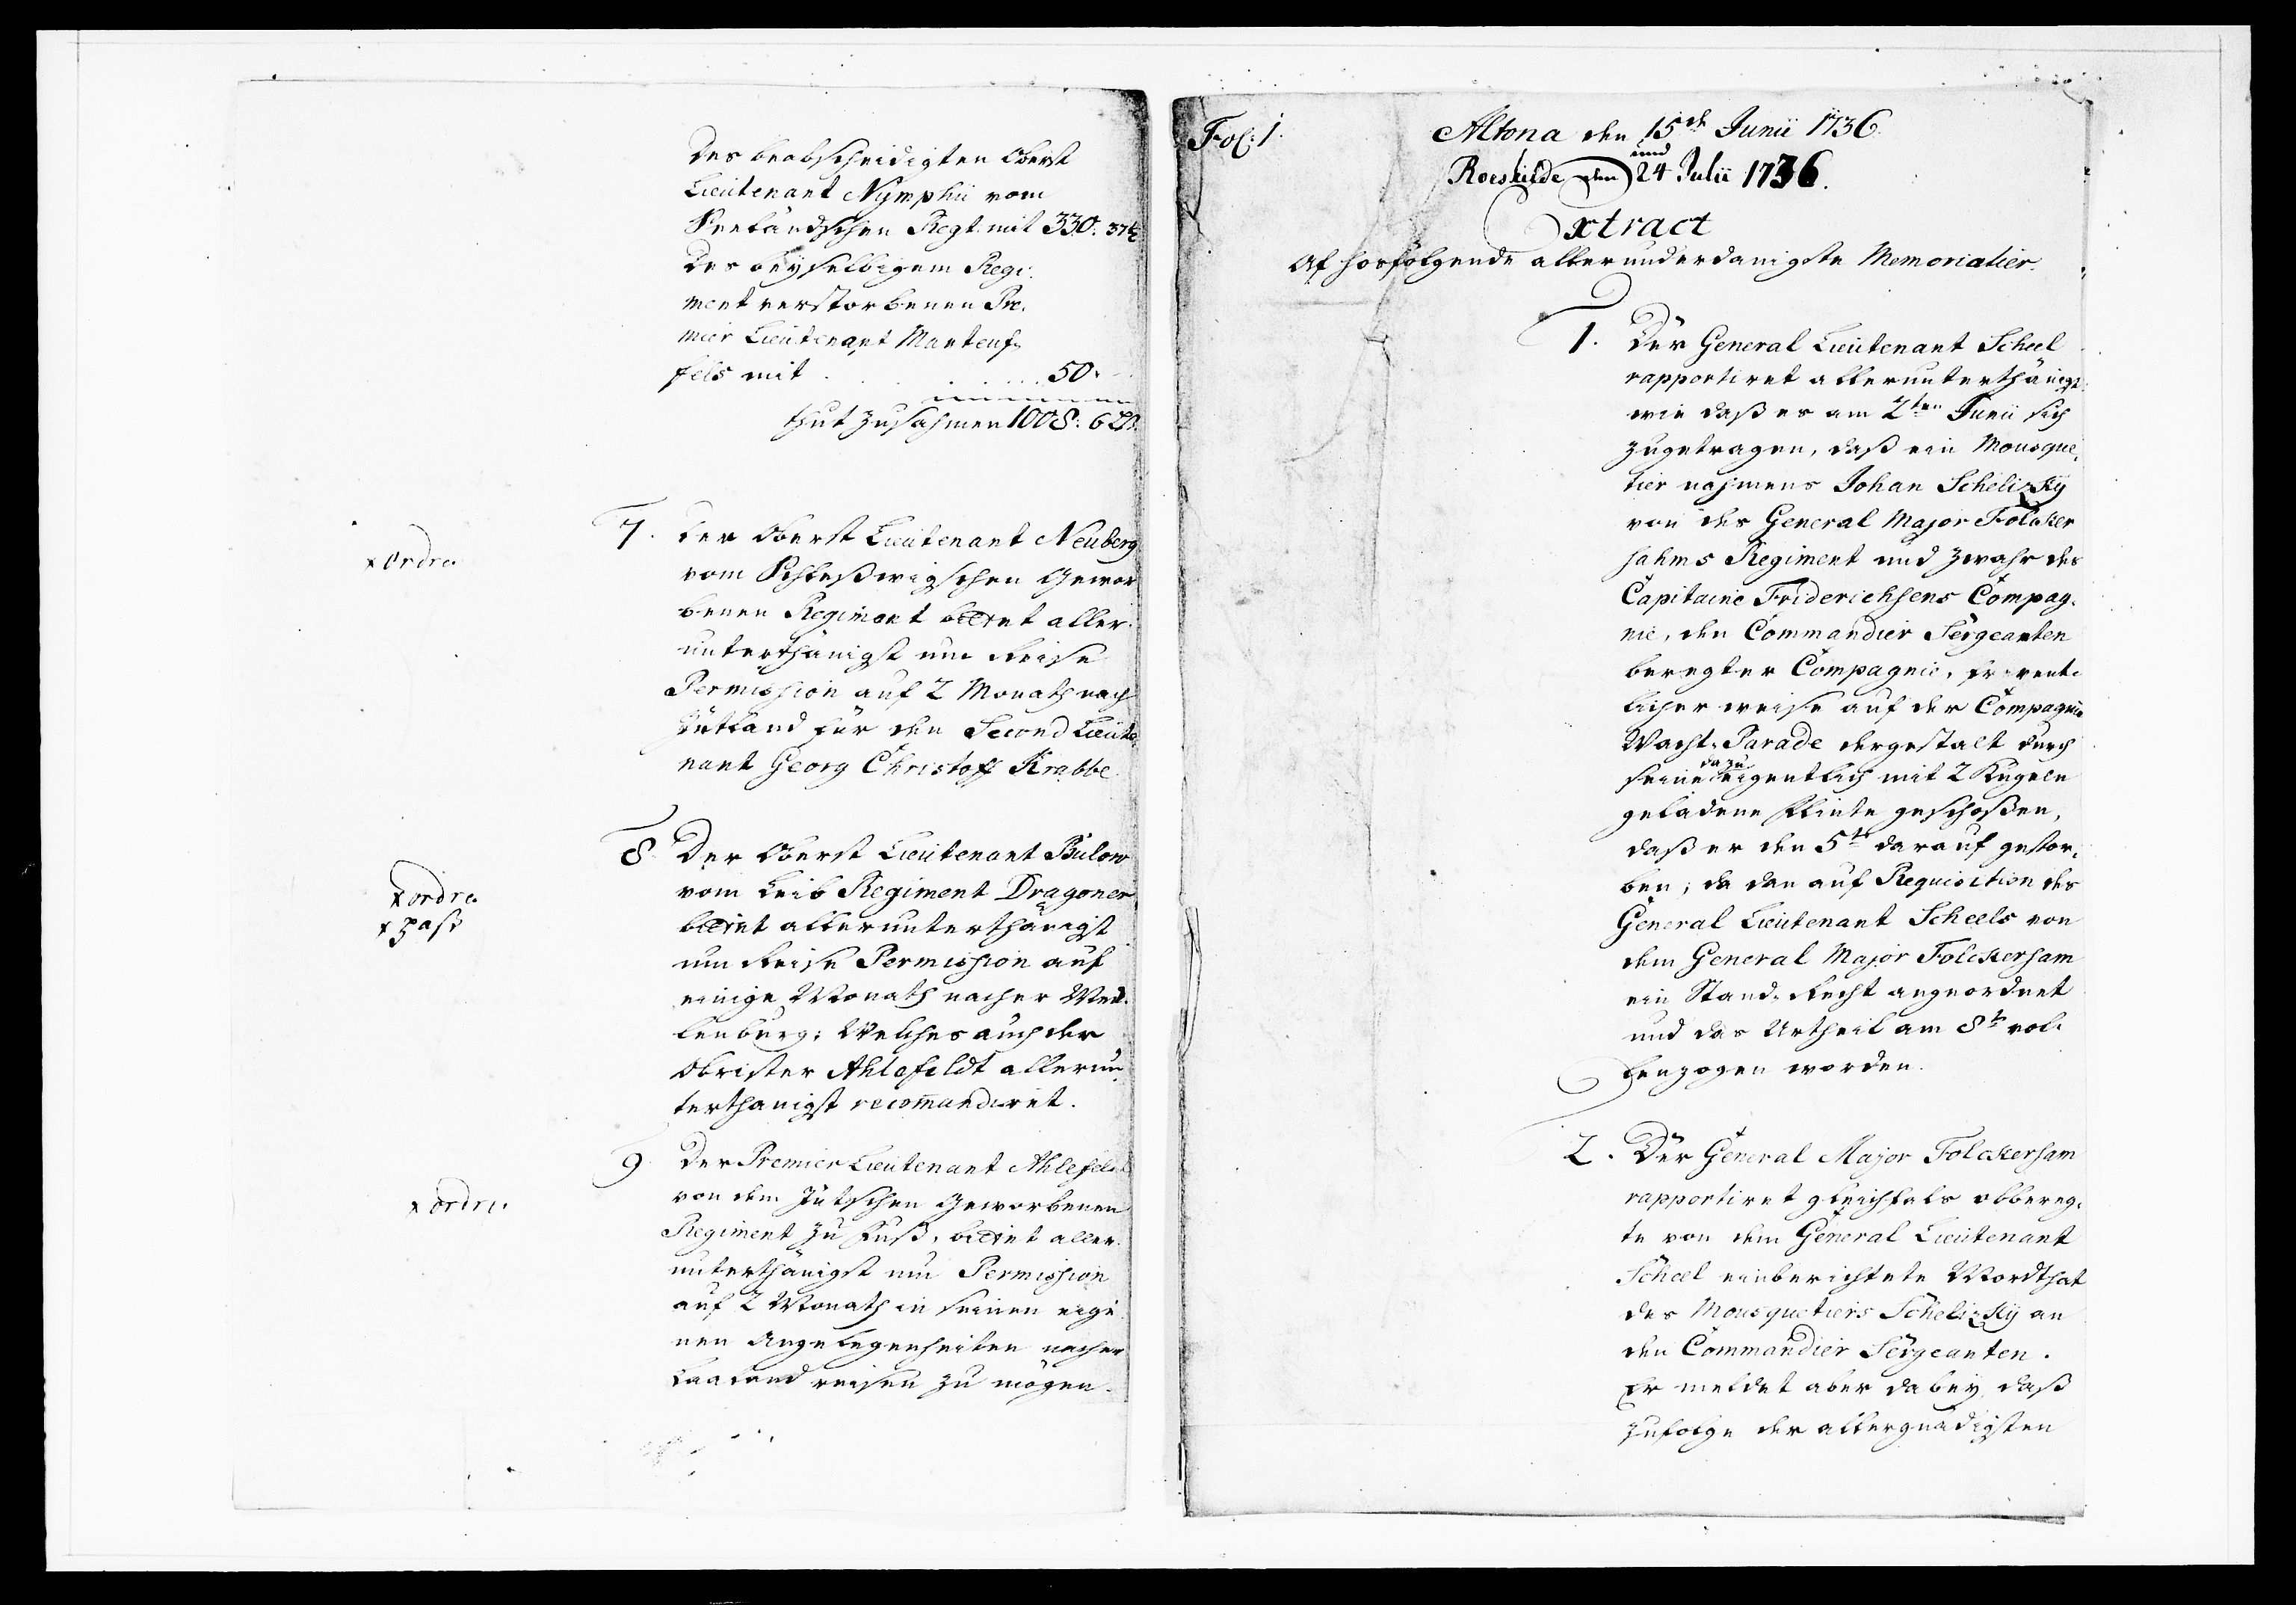 des beabscheidigten Oberst
Lieutenant Nymphii vom
Seeländschen Regt. mit 330. 37½
des bey selbigem Regi-
ment verstorbenen Pre-
mier Lieutenant Manteuf-
fels mit . . . . . . 50.
thut zusahmen 1008. 62
x ordre.
7. Der Oberst Lieutenant Neuberg
vom Schleßwigschen Gewor-
benen Regiment bittet aller-
unterthänigst um Reise
Permission auf 2 Monath nach
Jütland für den Second Lieute-
nant Georg Christoff Krabbe.
x ordre.
x pass
8. Der Oberst Lieutenant Bülow
vom Leib Regiment Dragoner
bittet allerunterthänigst
um Reise Permission auf
einige Monath nacher Meck-
lenburg; Welches auch der
Obrister Ahlefeldt allerun-
terthänigst recommandiret.
x ordre.
9. Der Premier Lieutenant Ahlefeldt
von dem Jütschen Geworbenen
Regiment zu Fuß, bittet aller-
unterthänigst um Permission
auf 2 Monath in seinen eige-
nen Angelegenheiten nacher
Laaland reisen zu mögen.
Fol. 1.
Altona den 15de Junii 1736.
und
Roeskilde den 24 Julii 1736.
Extract
Af hosfølgende allerunderdanigste Memorialier.
1. Der General Lieutenant Scheel
rapportiret allerunterthänigst
wie daß es am 2ten Junii sich
zugetragen, daß ein Mousque-
tier nahmens Johan Schelizky
von des General Major Folcker-
sahms Regiment und zwahr des
Capitaine Friderichsens Compag-
nie, den Commandier Sergeanten
beregter Compagnie,
licher weise auf der Compagnie
Wacht-Parade dergestalt durch
dazu
seine eigentlich mit 2 Kugeln
geladene Flinte geschoßen,
daß er den 5te darauf gestor-
ben; da dan auf Requisition des
General Lieutenant Scheels von
dem General Major Folckersam
ein Stand-Recht angeordnet
und das Urtheil am 8t vol-
lenzogen worden.
2. Der General Major Folckersam
rapportiret gleichfals obbereg-
te von dem General Lieutenant
Scheel einberichtete Mordthat
des Mousquetiers Schelizky an
den Commandier Sergeanten.
Er meldet aber dabey, daß
zufolge der allergnädigsten